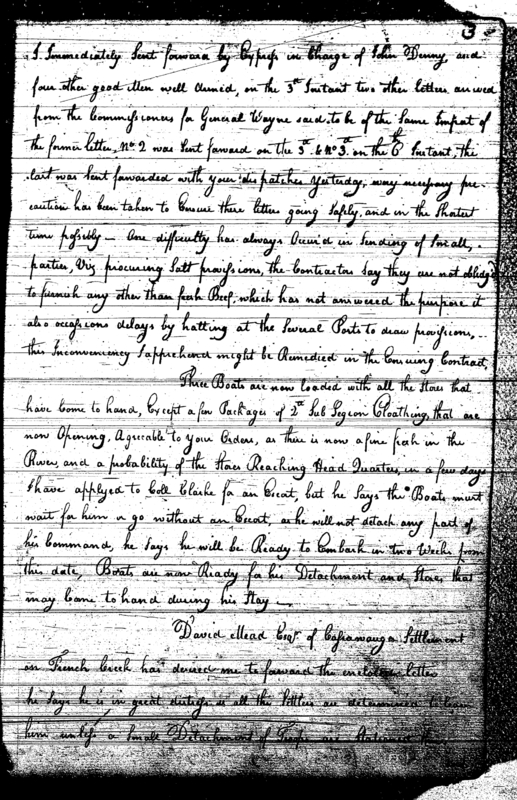 3
I Immediately Sent forward by Express in Charge of John Denny, and
four other good Men well Armed, on the 3d Instant two other letters arrived
from the Commissioners for General Wayne said to be of the Same Import of
the former letter, No. 2 was Sent forward on the 3d & No 3d on the 6th Instant, the
last was Sent forwarded with your dispatches Yesterday, every necessary pre-
caution has been taken to Ensure these letters going Safely, and in the Shortest
time possible — One difficulty has always Occur'd in Sending of Small
parties, Viz procuring Salt provissions, the Contractors Say they are not oblidg'd
to furnish any other than fresh Beef, which has not answered the purpose it
also occassions delays by halting at the Several Posts to draw provissions,
this Inconveniency I apprehend might be Remedied in the Ensuing Contract,
Three Boats are now loaded with all the Stores that
have Come to hand, Except a few Packages of 2d Sub Legion Cloathing, that are
now Opening, Agreeable to your Orders, as there is now a fine fresh in the
River, and a probability of the Stores Reaching Head Quarters, in a few days
I have applyed to Coll Clarke for an Escort, but he Says the Boats must
wait for him or go without an Escort, as he will not detach any part of
his Command, he Says he will be Ready to Embark in two Weeks from
this date, Boats are now Ready for his Detachment and Stores that
may Come to hand during his Stay —
David Mead Esqr. of Cassawauga Settlement
on French Creek has desired me to forward the enclosed letter
he Says he is in great distress as all the Settlers are determined to leave
him unless a Small Detachment of Troops are Stationed